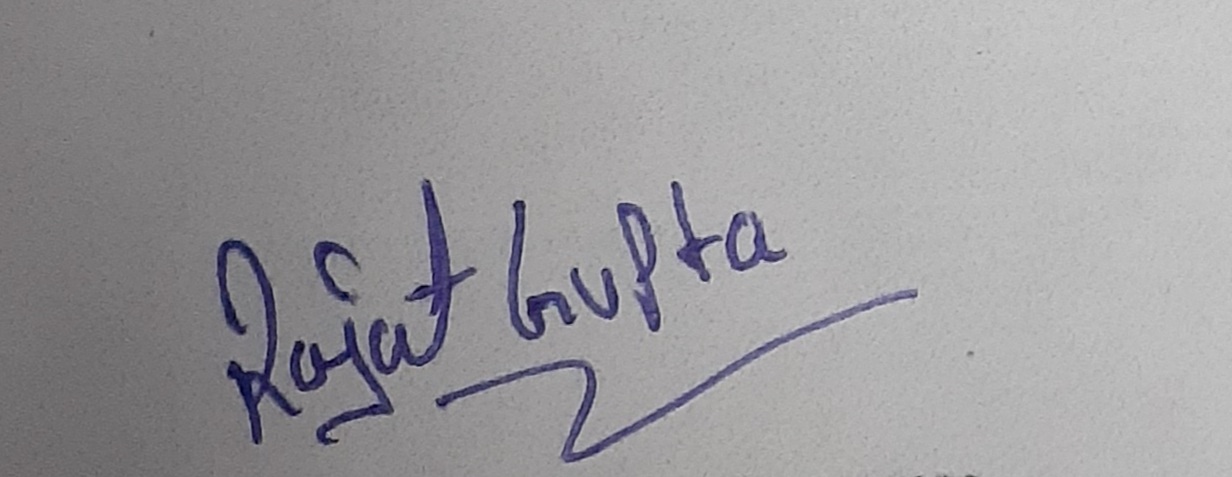 Rajat Gupta